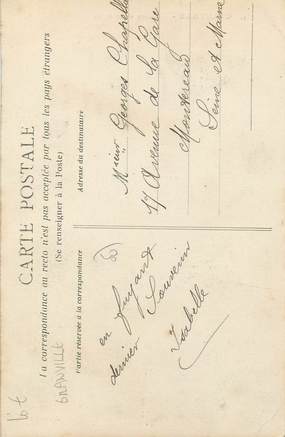 CARTE POSTALE
La correspondance au recto n'est pas acceptée par tous les pays étrangers
(Se renseigner à la Poste)
Partie réservée à la correspondance
Adresse du destinataire
en fuyant
dernier Souvenir
Isabelle
Mr Georges Chapelle
17 Avenue de la Gare
Montereau
Seine et Marne
GRANVILLE